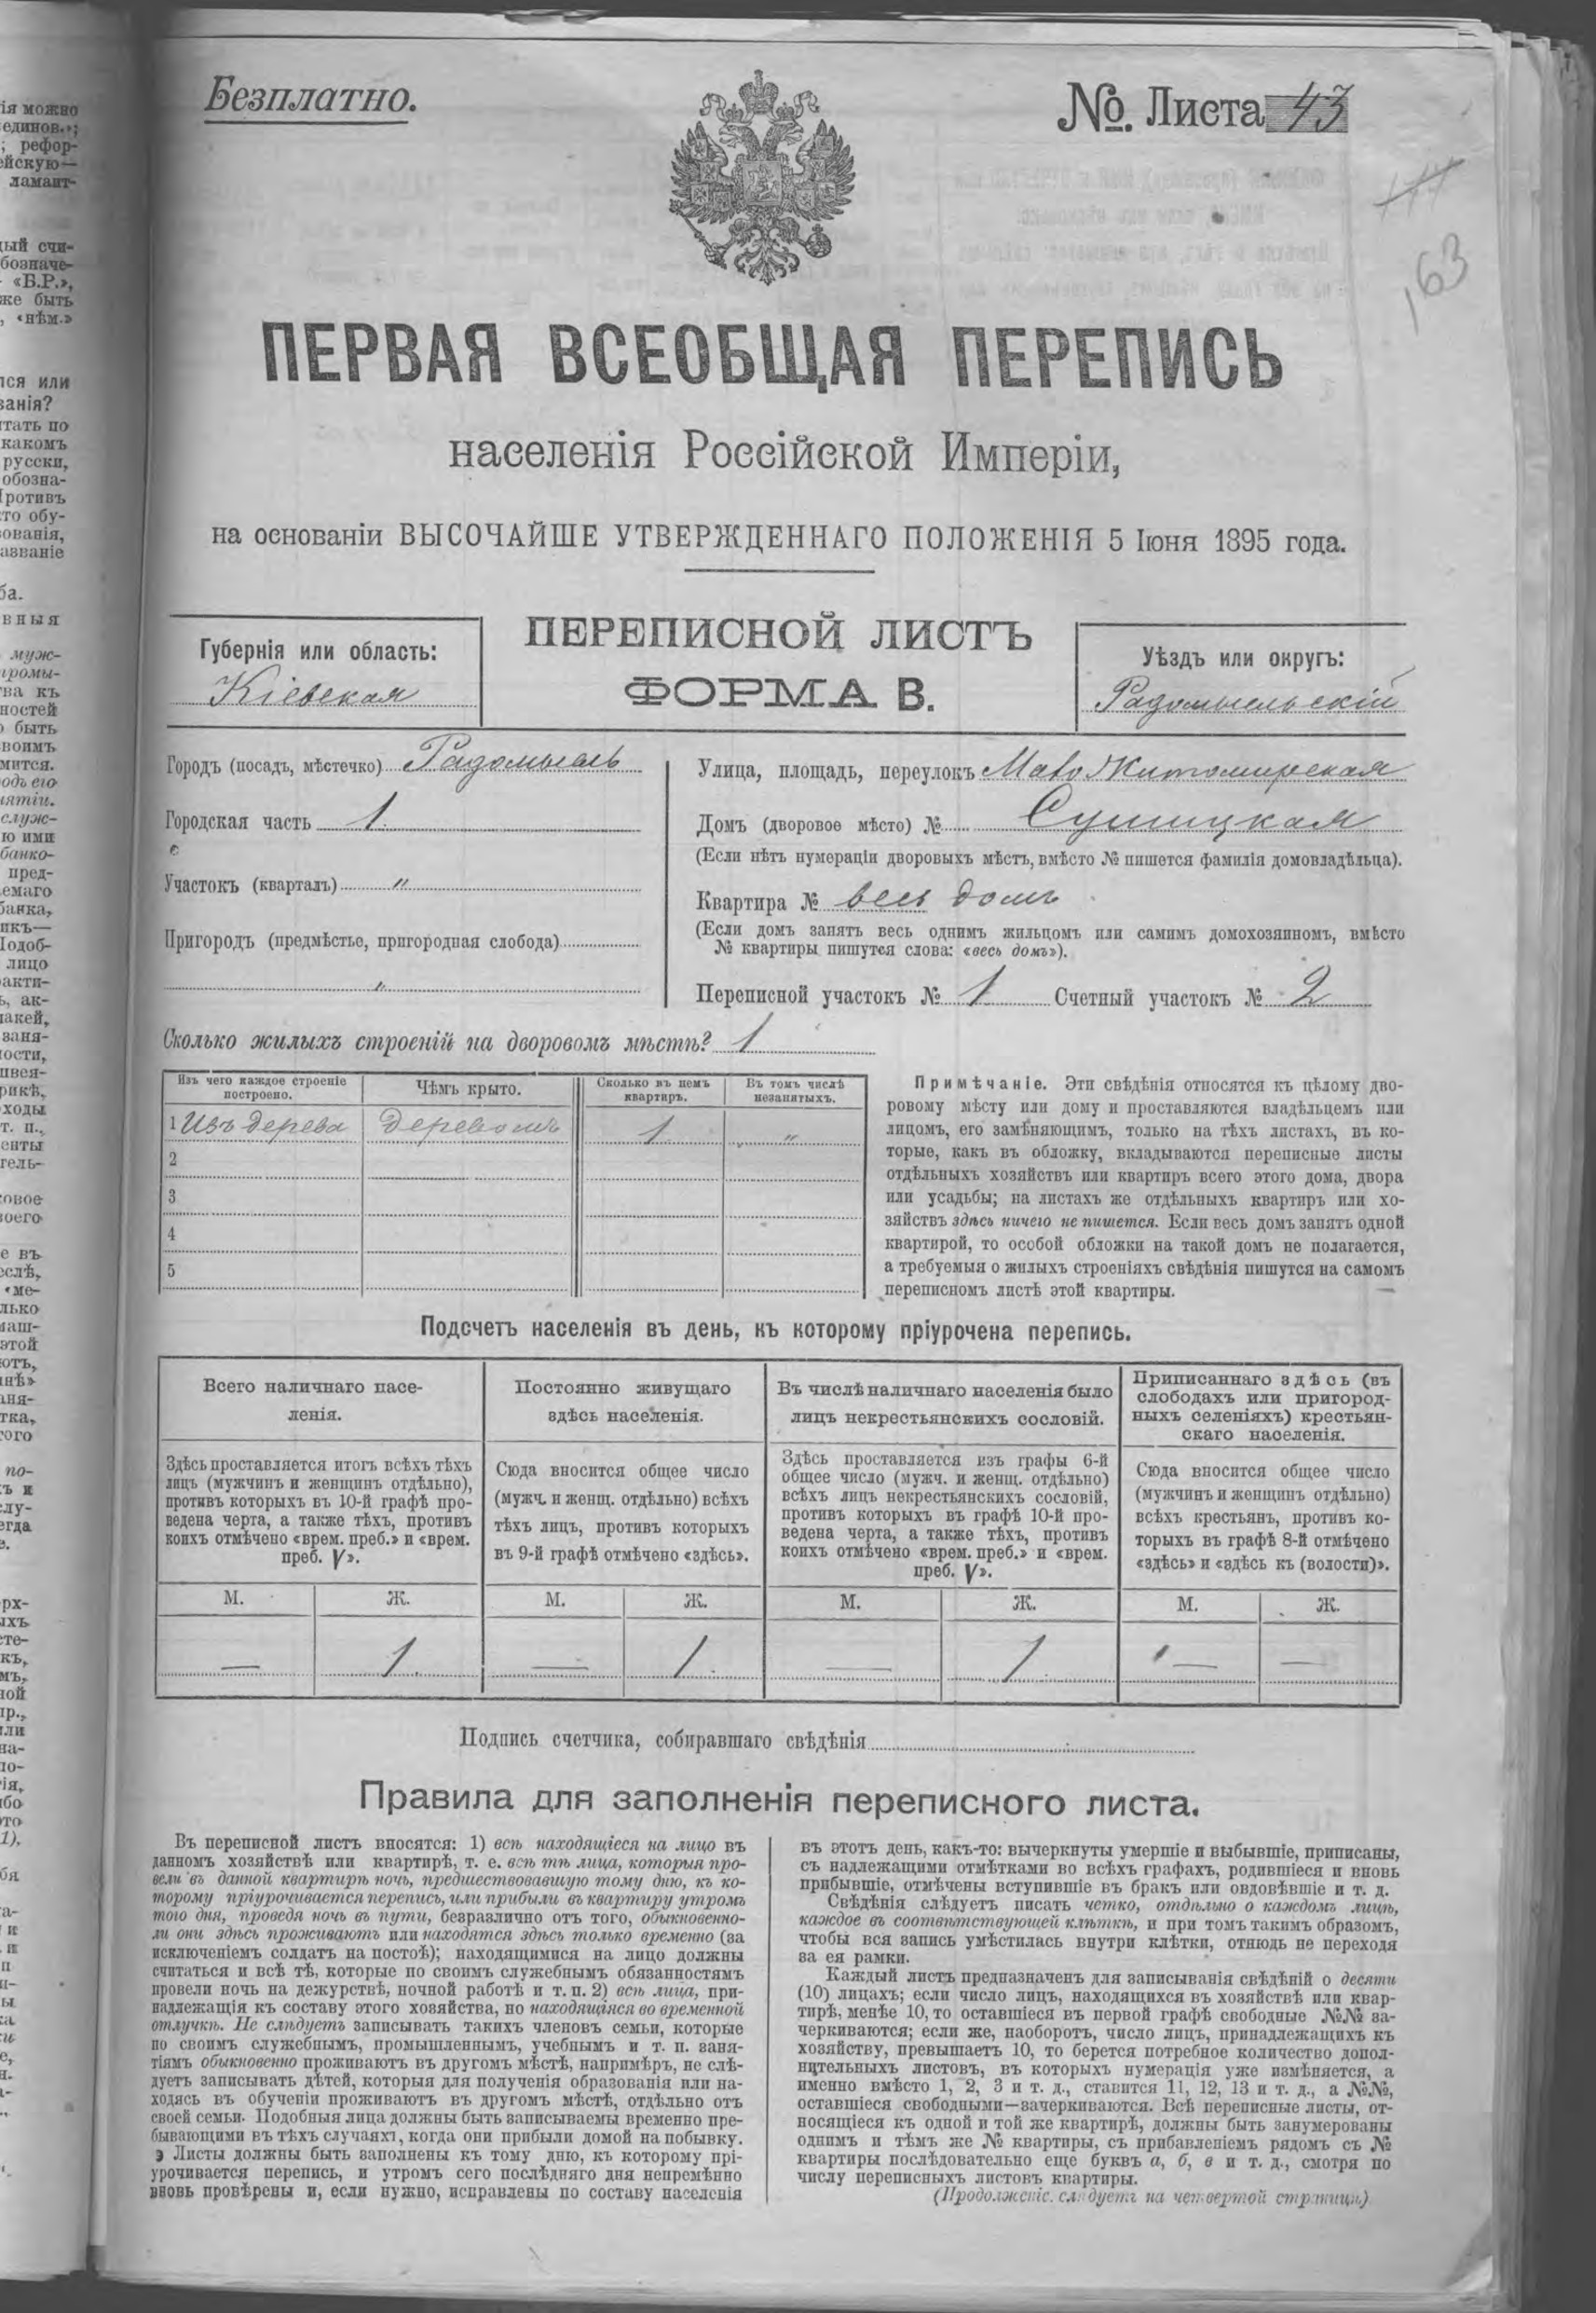 Безплатно.
№. Листа 43
163
ПЕРВАЯ ВСЕОБЩАЯ ПЕРЕПИСЬ
населенія Россійской Имперіи,
на основаніи ВЫСОЧАЙШЕ УТВЕРЖДЕННАГО ПОЛОЖЕНІЯ 5 Іюня 1895 года.
Губернія или область:
Кіевская
ПЕРЕПИСНОЙ ЛИСТЪ
ФОРМА В.
Уѣздъ или округъ:
Радомысльскій
Городъ (посадъ, мѣстечко) Радомысль
Городская часть 1
Участокъ (кварталъ) "
Пригородъ (предмѣстье, пригородная слобода)
"
Улица, площадь, переулокъ Мало Житомирская
Домъ (дворовое мѣсто) № Сушицкая
(Если нѣтъ нумераціи дворовыхъ мѣстъ, вмѣсто № пишется фамилія домовладѣльца).
Квартира № весь домъ
(Если домъ занятъ весь однимъ жильцомъ или самимъ домохозяиномъ, вмѣсто
№ квартиры пишутся слова: «весь домъ»).
Переписной участокъ № 1 Счетный участокъ № 2
Сколько жилыхъ строеній на дворовомъ мѣстѣ? 1
Изъ чего каждое строеніе построено.
Чѣмъ крыто.
Сколько въ немъ квартиръ.
Въ томъ числѣ незанятыхъ.
1 Изъ дерева деревомъ 1 "
2
3
4
5
Примѣчаніе. Эти свѣдѣнія относятся къ цѣлому дво-
ровому мѣсту или дому и проставляются владѣльцемъ или
лицомъ, его замѣняющимъ, только на тѣхъ листахъ, въ ко-
торые, какъ въ обложку, вкладываются переписные листы
отдѣльныхъ хозяйствъ или квартиръ всего этого дома, двора
или усадьбы; на листахъ же отдѣльныхъ квартиръ или хо-
зяйствъ здѣсь ничего не пишется. Если весь домъ занятъ одной
квартирой, то особой обложки на такой домъ не полагается,
а требуемыя о жилыхъ строеніяхъ свѣдѣнія пишутся на самомъ
переписномъ листѣ этой квартиры.
Подсчетъ населенія въ день, къ которому пріурочена перепись.
Всего наличнаго насе-
ленія.
Здѣсь проставляется итогъ всѣхъ тѣхъ
лицъ (мужчинъ и женщинъ отдѣльно),
противъ которыхъ въ 10-й графѣ про-
ведена черта, а также тѣхъ, противъ
коихъ отмѣчено «врем. преб.» и «врем.
преб. V».
Постоянно живущаго
здѣсь населенія.
Сюда вносится общее число
(мужч. и женщ. отдѣльно) всѣхъ
тѣхъ лицъ, противъ которыхъ
въ 9-й графѣ отмѣчено «здѣсь».
Въ числѣ наличнаго населенія было
лицъ некрестьянскихъ сословій.
Здѣсь проставляется изъ графы 6-й
общее число (мужч. и женщ. отдѣльно)
всѣхъ лицъ некрестьянскихъ сословій,
противъ которыхъ въ графѣ 10-й про-
ведена черта, а также тѣхъ, противъ
коихъ отмѣчено «врем. преб.» и «врем.
преб. V».
Приписаннаго здѣсь (въ
слободахъ или пригород-
ныхъ селеніяхъ) крестьян-
скаго населенія.
Сюда вносится общее число
(мужчинъ и женщинъ отдѣльно)
всѣхъ крестьянъ, противъ ко-
торыхъ въ графѣ 8-й отмѣчено
«здѣсь» и «здѣсь къ (волости)».
М. Ж. М. Ж. М. Ж. М. Ж.
— 1 — 1 — 1 — —
Подпись счетчика, собиравшаго свѣдѣнія
Правила для заполненія переписного листа.
Въ переписной листъ вносятся: 1) всѣ находящіеся на лицо въ
данномъ хозяйствѣ или квартирѣ, т. е. всѣ тѣ лица, которыя про-
вели въ данной квартирѣ ночь, предшествовавшую тому дню, къ ко-
торому пріурочивается перепись, или прибыли въ квартиру утромъ
того дня, проведя ночь въ пути, безразлично отъ того, обыкновенно-
ли они здѣсь проживаютъ или находятся здѣсь только временно (за
исключеніемъ солдатъ на постоѣ); находящимися на лицо должны
считаться и всѣ тѣ, которые по своимъ служебнымъ обязанностямъ
провели ночь на дежурствѣ, ночной работѣ и т. п. 2) всѣ лица, при-
надлежащія къ составу этого хозяйства, но находящіяся во временной
отлучкѣ. Не слѣдуетъ записывать такихъ членовъ семьи, которые
по своимъ служебнымъ, промышленнымъ, учебнымъ и т. п. заня-
тіямъ обыкновенно проживаютъ въ другомъ мѣстѣ, напримѣръ, не слѣ-
дуетъ записывать дѣтей, которыя для полученія образованія или на-
ходясь въ обученіи проживаютъ въ другомъ мѣстѣ, отдѣльно отъ
своей семьи. Подобныя лица должны быть записываемы временно пре-
бывающими въ тѣхъ случаяхъ, когда они прибыли домой на побывку.
Листы должны быть заполнены къ тому дню, къ которому прі-
урочивается перепись, и утромъ сего послѣдняго дня непремѣнно
вновь провѣрены и, если нужно, исправлены по составу населенія
въ этотъ день, какъ-то: вычеркнуты умершіе и выбывшіе, приписаны,
съ надлежащими отмѣтками во всѣхъ графахъ, родившіеся и вновь
прибывшіе, отмѣчены вступившіе въ бракъ или овдовѣвшіе и т. д.
Свѣдѣнія слѣдуетъ писать четко, отдѣльно о каждомъ лицѣ,
каждое въ соотвѣтствующей клѣткѣ, и при томъ такимъ образомъ,
чтобы вся запись умѣстилась внутри клѣтки, отнюдь не переходя
за ея рамки.
Каждый листъ предназначенъ для записыванія свѣдѣній о десяти
(10) лицахъ; если число лицъ, находящихся въ хозяйствѣ или квар-
тирѣ, менѣе 10, то оставшіеся въ первой графѣ свободные №№ за-
черкиваются; если же, наоборотъ, число лицъ, принадлежащихъ къ
хозяйству, превышаетъ 10, то берется потребное количество допол-
нительныхъ листовъ, въ которыхъ нумерація уже измѣняется, а
именно вмѣсто 1, 2, 3 и т. д., ставится 11, 12, 13 и т. д., а №№,
оставшіеся свободными—зачеркиваются. Всѣ переписные листы, от-
носящіеся къ одной и той же квартирѣ, должны быть занумерованы
однимъ и тѣмъ же № квартиры, съ прибавленіемъ рядомъ съ №
квартиры послѣдовательно еще буквъ а, б, в и т. д., смотря по
числу переписныхъ листовъ квартиры.
(Продолженіе слѣдуетъ на четвертой страницѣ)